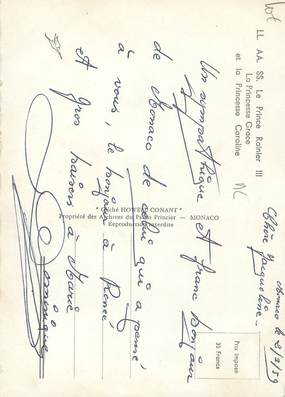 LL. AA. SS. Le Prince Rainier III
La Princesse Grace
et la Princesse Caroline
Monaco le 2/3/59
Chère Jacqueline -
Un sympathique et franc bonjour
de Monaco de celui qui a pensé
à vous, le bonjour à René
et gros baisers à Marie
Dominique
"Cliché HOWELL CONANT"
Propriété des Archives du Palais Princier - MONACO
Reproduction interdite
Prix imposé
35 Francs